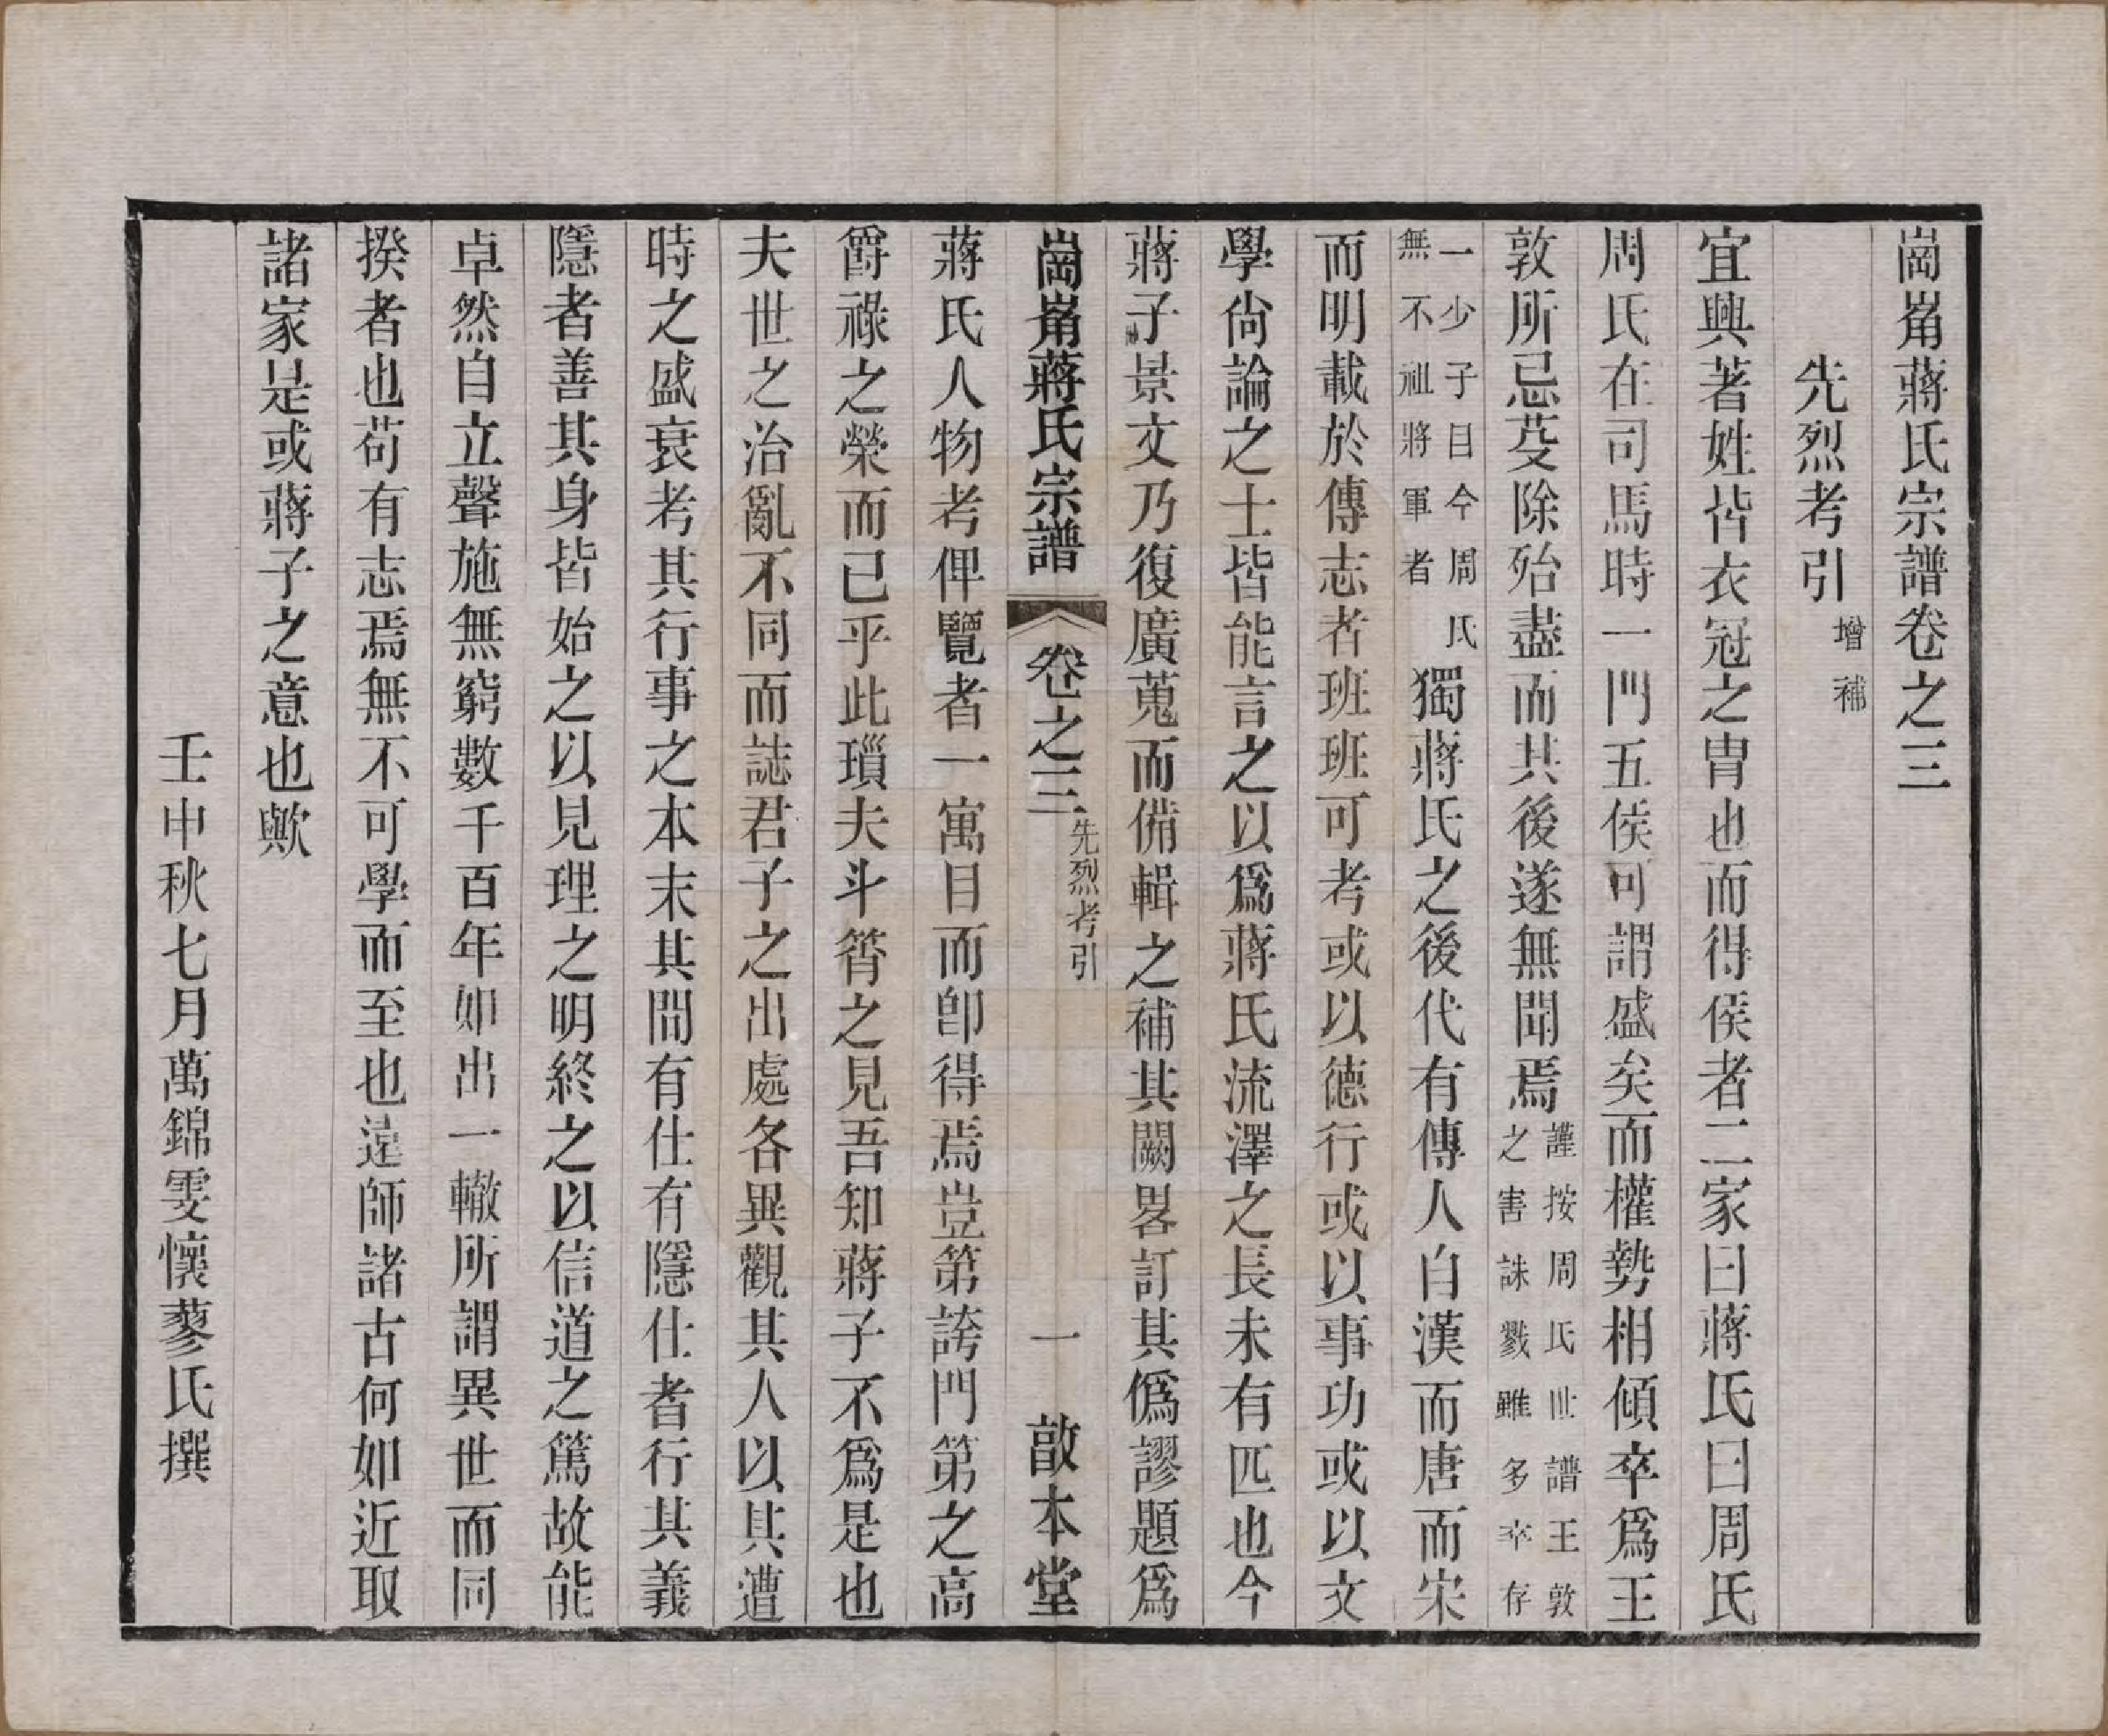 崗崙蔣氏宗譜卷之三
先烈考引 增補
宜興著姓皆衣冠之胄也而得侯者二家曰蔣氏曰周氏
周氏在司馬時一門五侯可謂盛矣而權勢相傾卒爲王
敦所忌芟除殆盡而其後遂無聞焉 謹按周氏世譜王敦之害誅戮雖多卒存
一少子目今周氏無不祖將軍者 獨蔣氏之後代有傳人自漢而唐而宋
而明載於傳志者班班可考或以德行或以事功或以文
學尙論之士皆能言之以爲蔣氏流澤之長未有匹也今
蔣子景文乃復廣蒐而備輯之補其闕畧訂其僞謬題爲
崗崙蔣氏宗譜 卷之三 先烈考引 一 敨本堂
蔣氏人物考俾覽者一寓目而卽得焉豈第誇門第之高
爵祿之榮而已乎此瑣夫斗筲之見吾知蔣子不爲是也
夫世之治亂不同而誌君子之出處各異觀其人以其遭
時之盛衰考其行事之本末其間有仕有隱仕者行其義
隱者善其身皆始之以見理之明終之以信道之篤故能
卓然自立聲施無窮數千百年如出一轍所謂異世而同
揆者也苟有志焉無不可學而至也遠師諸古何如近取
諸家是或蔣子之意也歟
壬申秋七月萬錦雯懷蓼氏撰